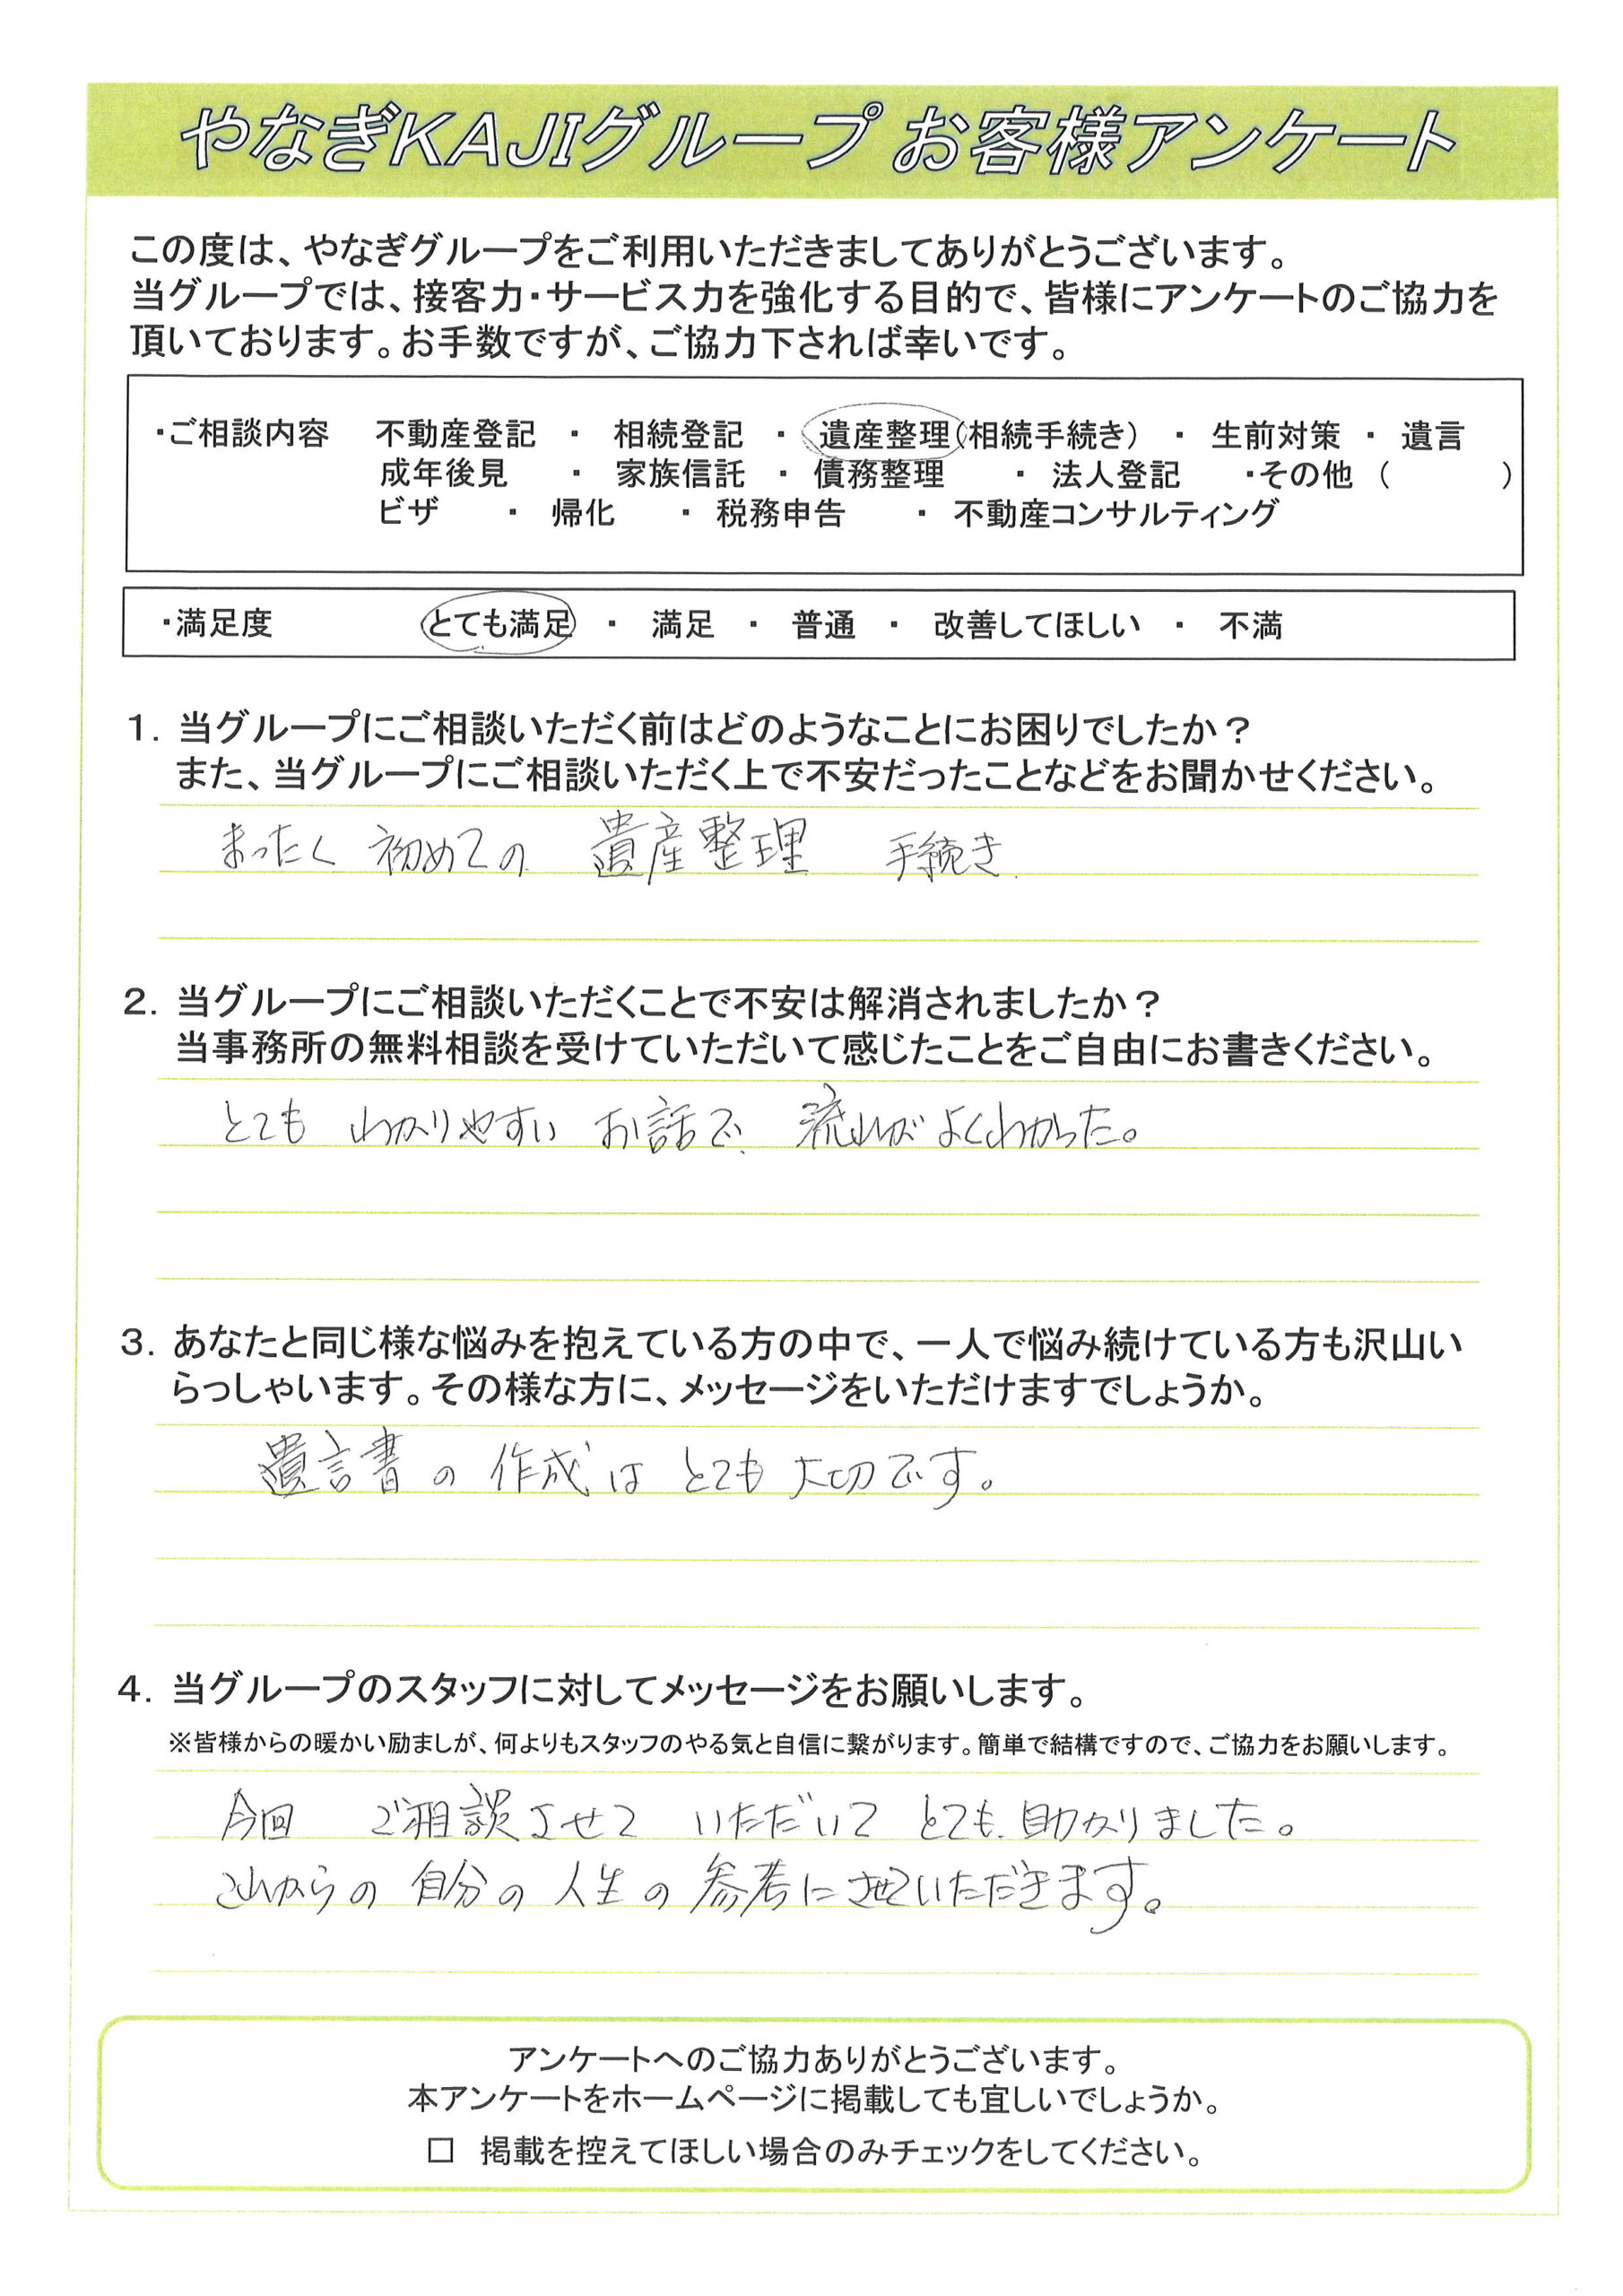 やなぎKAJIグループ お客様アンケート
この度は、やなぎグループをご利用いただきましてありがとうございます。
当グループでは、接客力・サービス力を強化する目的で、皆様にアンケートのご協力を
頂いております。お手数ですが、ご協力下されば幸いです。
・ご相談内容 不動産登記 ・ 相続登記 ・ 遺産整理(相続手続き) ・ 生前対策 ・ 遺言
成年後見 ・ 家族信託 ・ 債務整理 ・ 法人登記 ・その他 ( )
ビザ ・ 帰化 ・ 税務申告 ・ 不動産コンサルティング
・満足度 とても満足 ・ 満足 ・ 普通 ・ 改善してほしい ・ 不満
1. 当グループにご相談いただく前はどのようなことにお困りでしたか?
また、当グループにご相談いただく上で不安だったことなどをお聞かせください。
まったく 初めての 遺産整理 手続き.
2. 当グループにご相談いただくことで不安は解消されましたか?
当事務所の無料相談を受けていただいて感じたことをご自由にお書きください。
とても わかりやすい お話で、流れがよくわかった。
3. あなたと同じ様な悩みを抱えている方の中で、一人で悩み続けている方も沢山い
らっしゃいます。その様な方に、メッセージをいただけますでしょうか。
遺言書の作成は とても 大切です。
4. 当グループのスタッフに対してメッセージをお願いします。
※皆様からの暖かい励ましが、何よりもスタッフのやる気と自信に繋がります。簡単で結構ですので、ご協力をお願いします。
今回 ご相談させて いただいて とても 助かりました。
これからの 自分の 人生の 参考にさせていただきます。
アンケートへのご協力ありがとうございます。
本アンケートをホームページに掲載しても宜しいでしょうか。
□ 掲載を控えてほしい場合のみチェックをしてください。